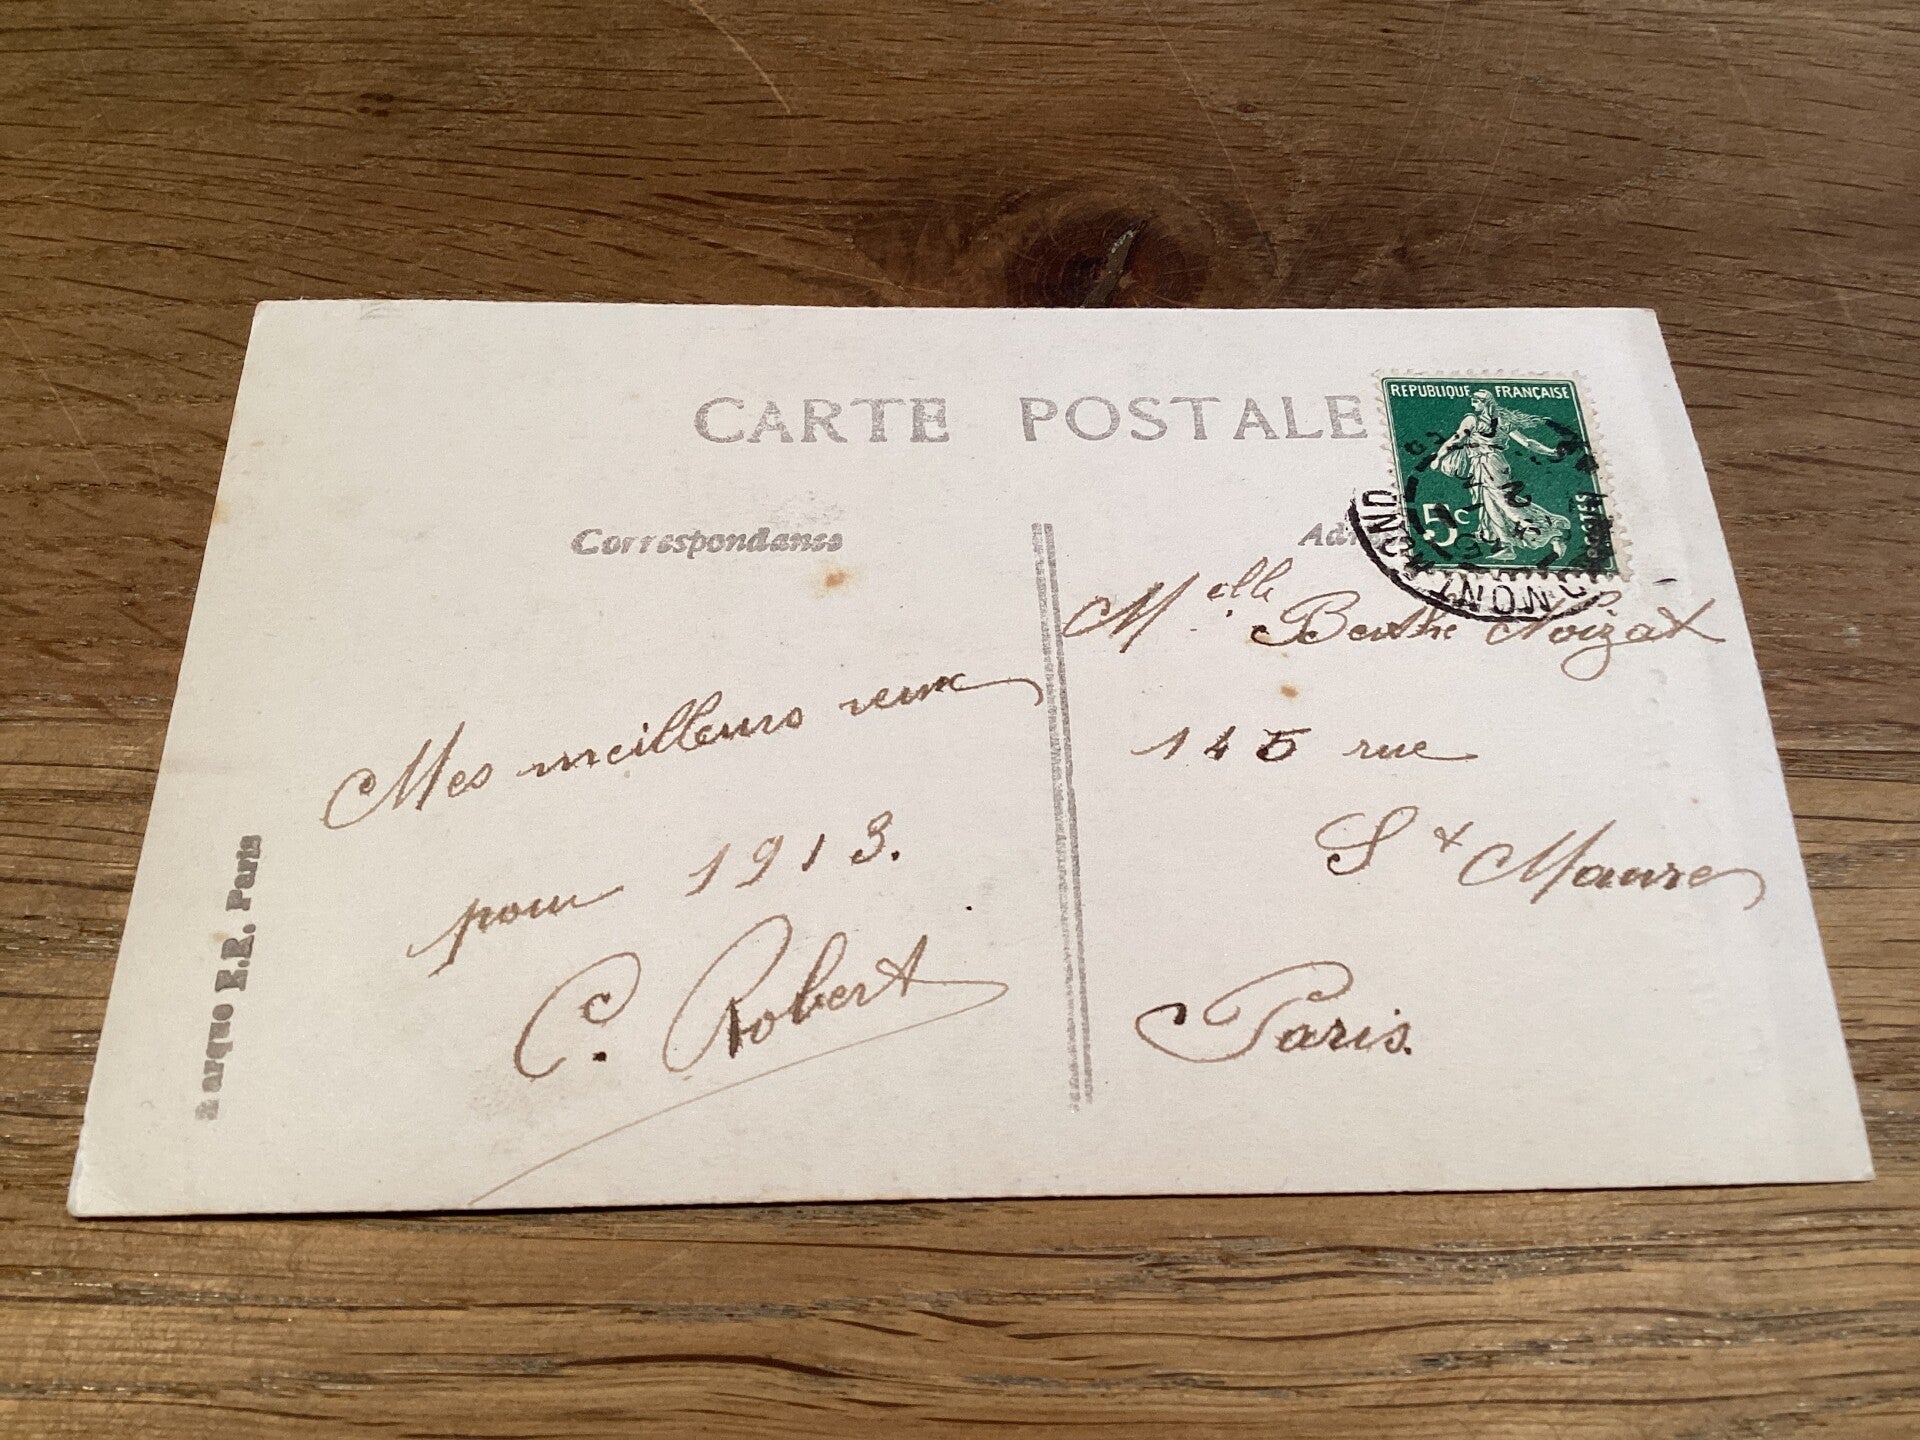 CARTE POSTALE
REPUBLIQUE FRANÇAISE
5c
POSTES
Correspondance
Melle Berthe Noizat
145 rue
St Maure
Paris.
Mes meilleurs vœux
pour 1913.
C. Robert
Marque E.R. Paris